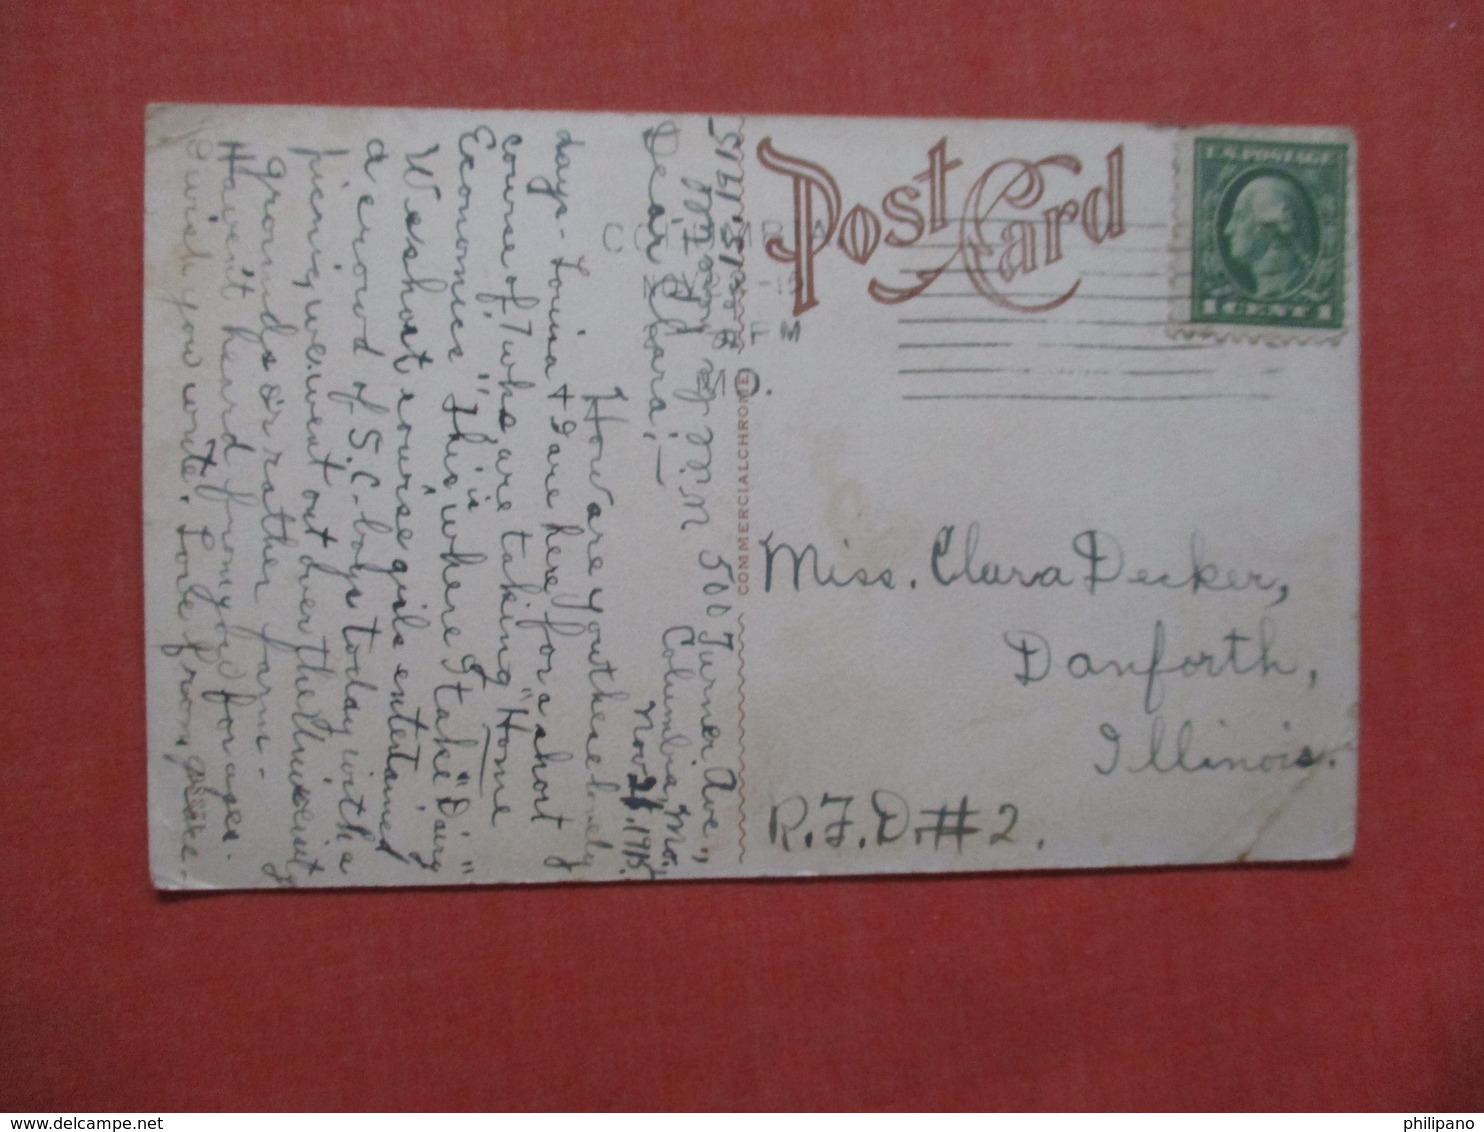 Post Card
U.S. POSTAGE
1 CENT 1
COMMERCIALCHROME
Miss. Clara Decker,
Danforth,
Illinois.
R.F.D. #2.
500 Turner Ave.,
Columbia, Mo.,
Nov. 21, 1915.
Dear Clara:—
How are you these lonely
days - Louina + I are here for a short
course of 7 wks are taking "Home
Economics" This is where I take "Dairy"
We short course girls entertained
a crowd of S.C. boys today with a
picnic, we went out over the University
grounds or rather farm -
Haven't heard from you for ages.
I wish you write. Love from